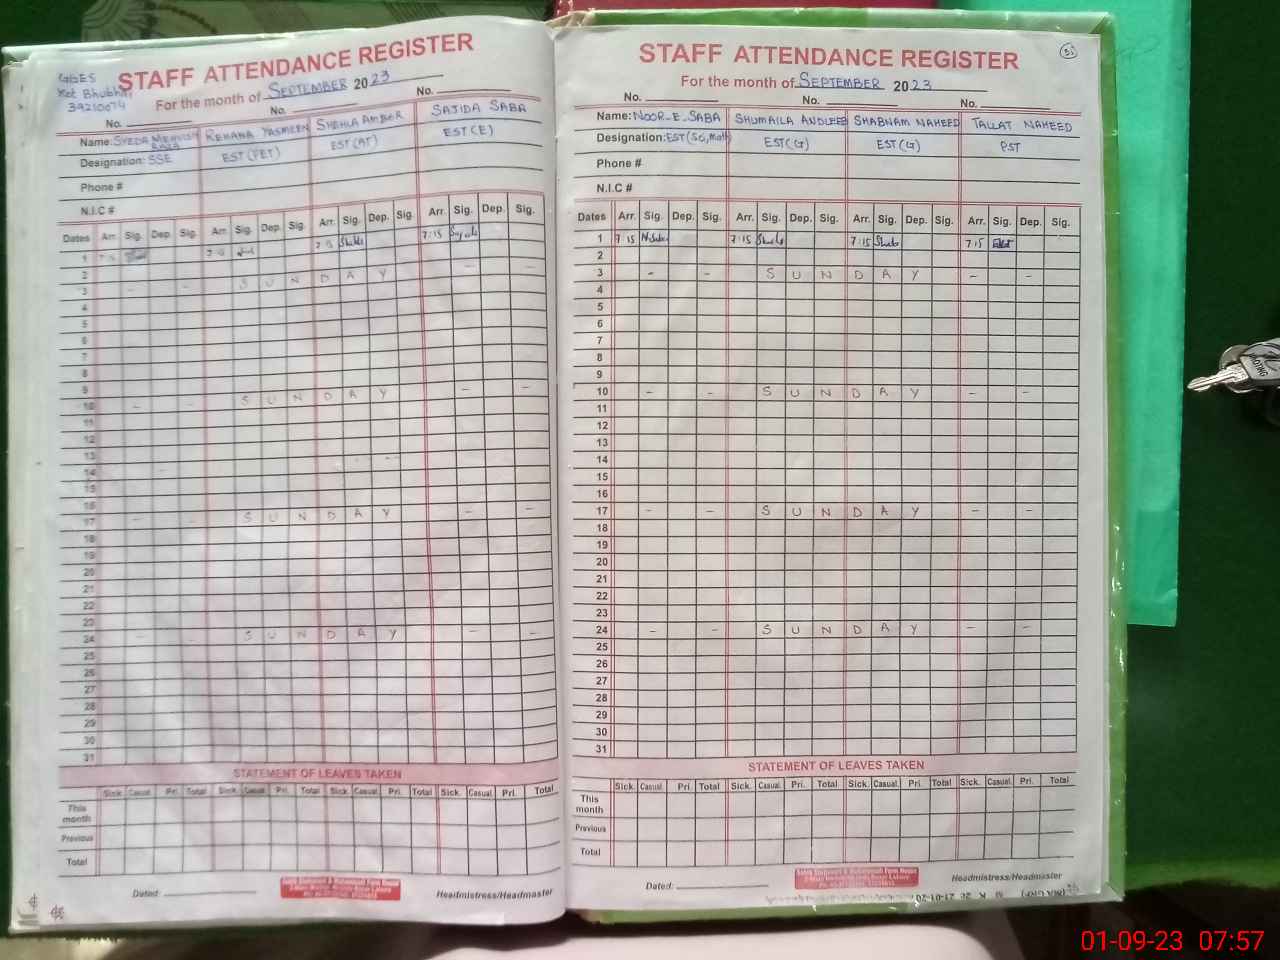 GGES
Kot Bhubha
39210074
STAFF ATTENDANCE REGISTER
For the month of SEPTEMBER 2023
No. No. No.
Name: SYEDA MEHVISH REHANA YASMEEN SHEHLA AMBER SAJIDA SABA
Designation: SSE EST (PET) EST (AT) EST (E)
Phone #
N.I.C #
Dates Arr. Sig. Dep. Sig. Arr. Sig. Dep. Sig. Arr. Sig. Dep. Sig. Arr. Sig. Dep. Sig.
1 7:15 7:15 7:15 7:15
2
3 - - S U N D A Y - -
4
5
6
7
8
9
10 - - S U N D A Y - -
11
12
13
14
15
16
17 - - S U N D A Y - -
18
19
20
21
22
23
24 - - S U N D A Y - -
25
26
27
28
29
30
31
STATEMENT OF LEAVES TAKEN
Sick. Casual. Pri. Total Sick. Casual. Pri. Total Sick. Casual. Pri. Total Sick. Casual. Pri. Total
This month
Previous
Total
Dated: Headmistress/Headmaster
STAFF ATTENDANCE REGISTER
For the month of SEPTEMBER 2023
No. No. No.
Name: NOOR-E-SABA SHUMAILA ANDLEEB SHABNAM NAHEED TALLAT NAHEED
Designation: EST (SC, Math) EST (G) EST (G) PST
Phone #
N.I.C #
Dates Arr. Sig. Dep. Sig. Arr. Sig. Dep. Sig. Arr. Sig. Dep. Sig. Arr. Sig. Dep. Sig.
1 7:15 7:15 7:15 7:15
2
3 - - S U N D A Y - -
4
5
6
7
8
9
10 - - S U N D A Y - -
11
12
13
14
15
16
17 - - S U N D A Y - -
18
19
20
21
22
23
24 - - S U N D A Y - -
25
26
27
28
29
30
31
STATEMENT OF LEAVES TAKEN
Sick. Casual. Pri. Total Sick. Casual. Pri. Total Sick. Casual. Pri. Total Sick. Casual. Pri. Total
This month
Previous
Total
Dated: Headmistress/Headmaster
01-09-23 07:57